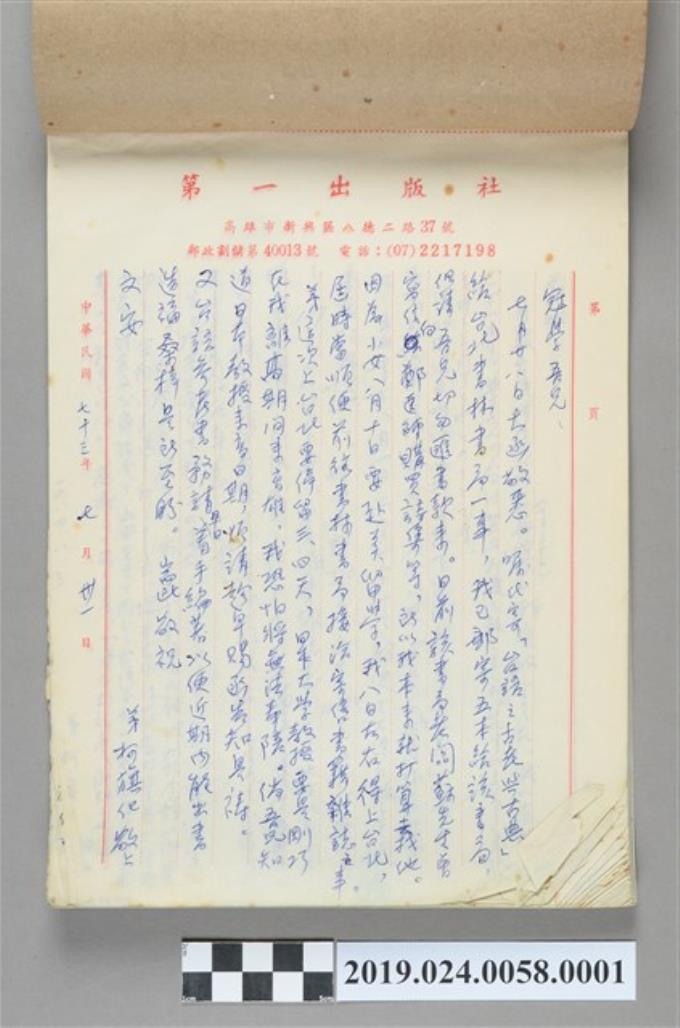 第一出版社
高雄市新興區八德二路37號
郵政劃儲第40013號 電話：(07)2217198
第 頁
冠學吾兄、
七月廿八日大函敬悉。囑代寄「台語之古老與古典」
給台北書林書局一事，我已郵寄五本給該書局，
但請吾兄切勿匯書款來。日前該書局老闆蘇先生曾
寫信向鄭 購買詩集等，所以我本來就打算 他。
因為小女八月十日要赴美留學，我八日左右得上台北，
屆時當順便前往書林書局接洽寄售書籍雜誌之事。
弟這次上台北要停留三、四天，日本大學教授要是剛巧
在我離高期間來高雄，我恐怕將無法奉陪。倘吾兄知
道日本教授來高日期，煩請趁早賜函告知是禱。
又台語參考書務請早日著手編著以便近期內能出書
造福桑梓是所至盼。 耑此敬祝
文安
弟 柯旗化敬上
中華民國七十三年七月卅一日
2019.024.0058.0001